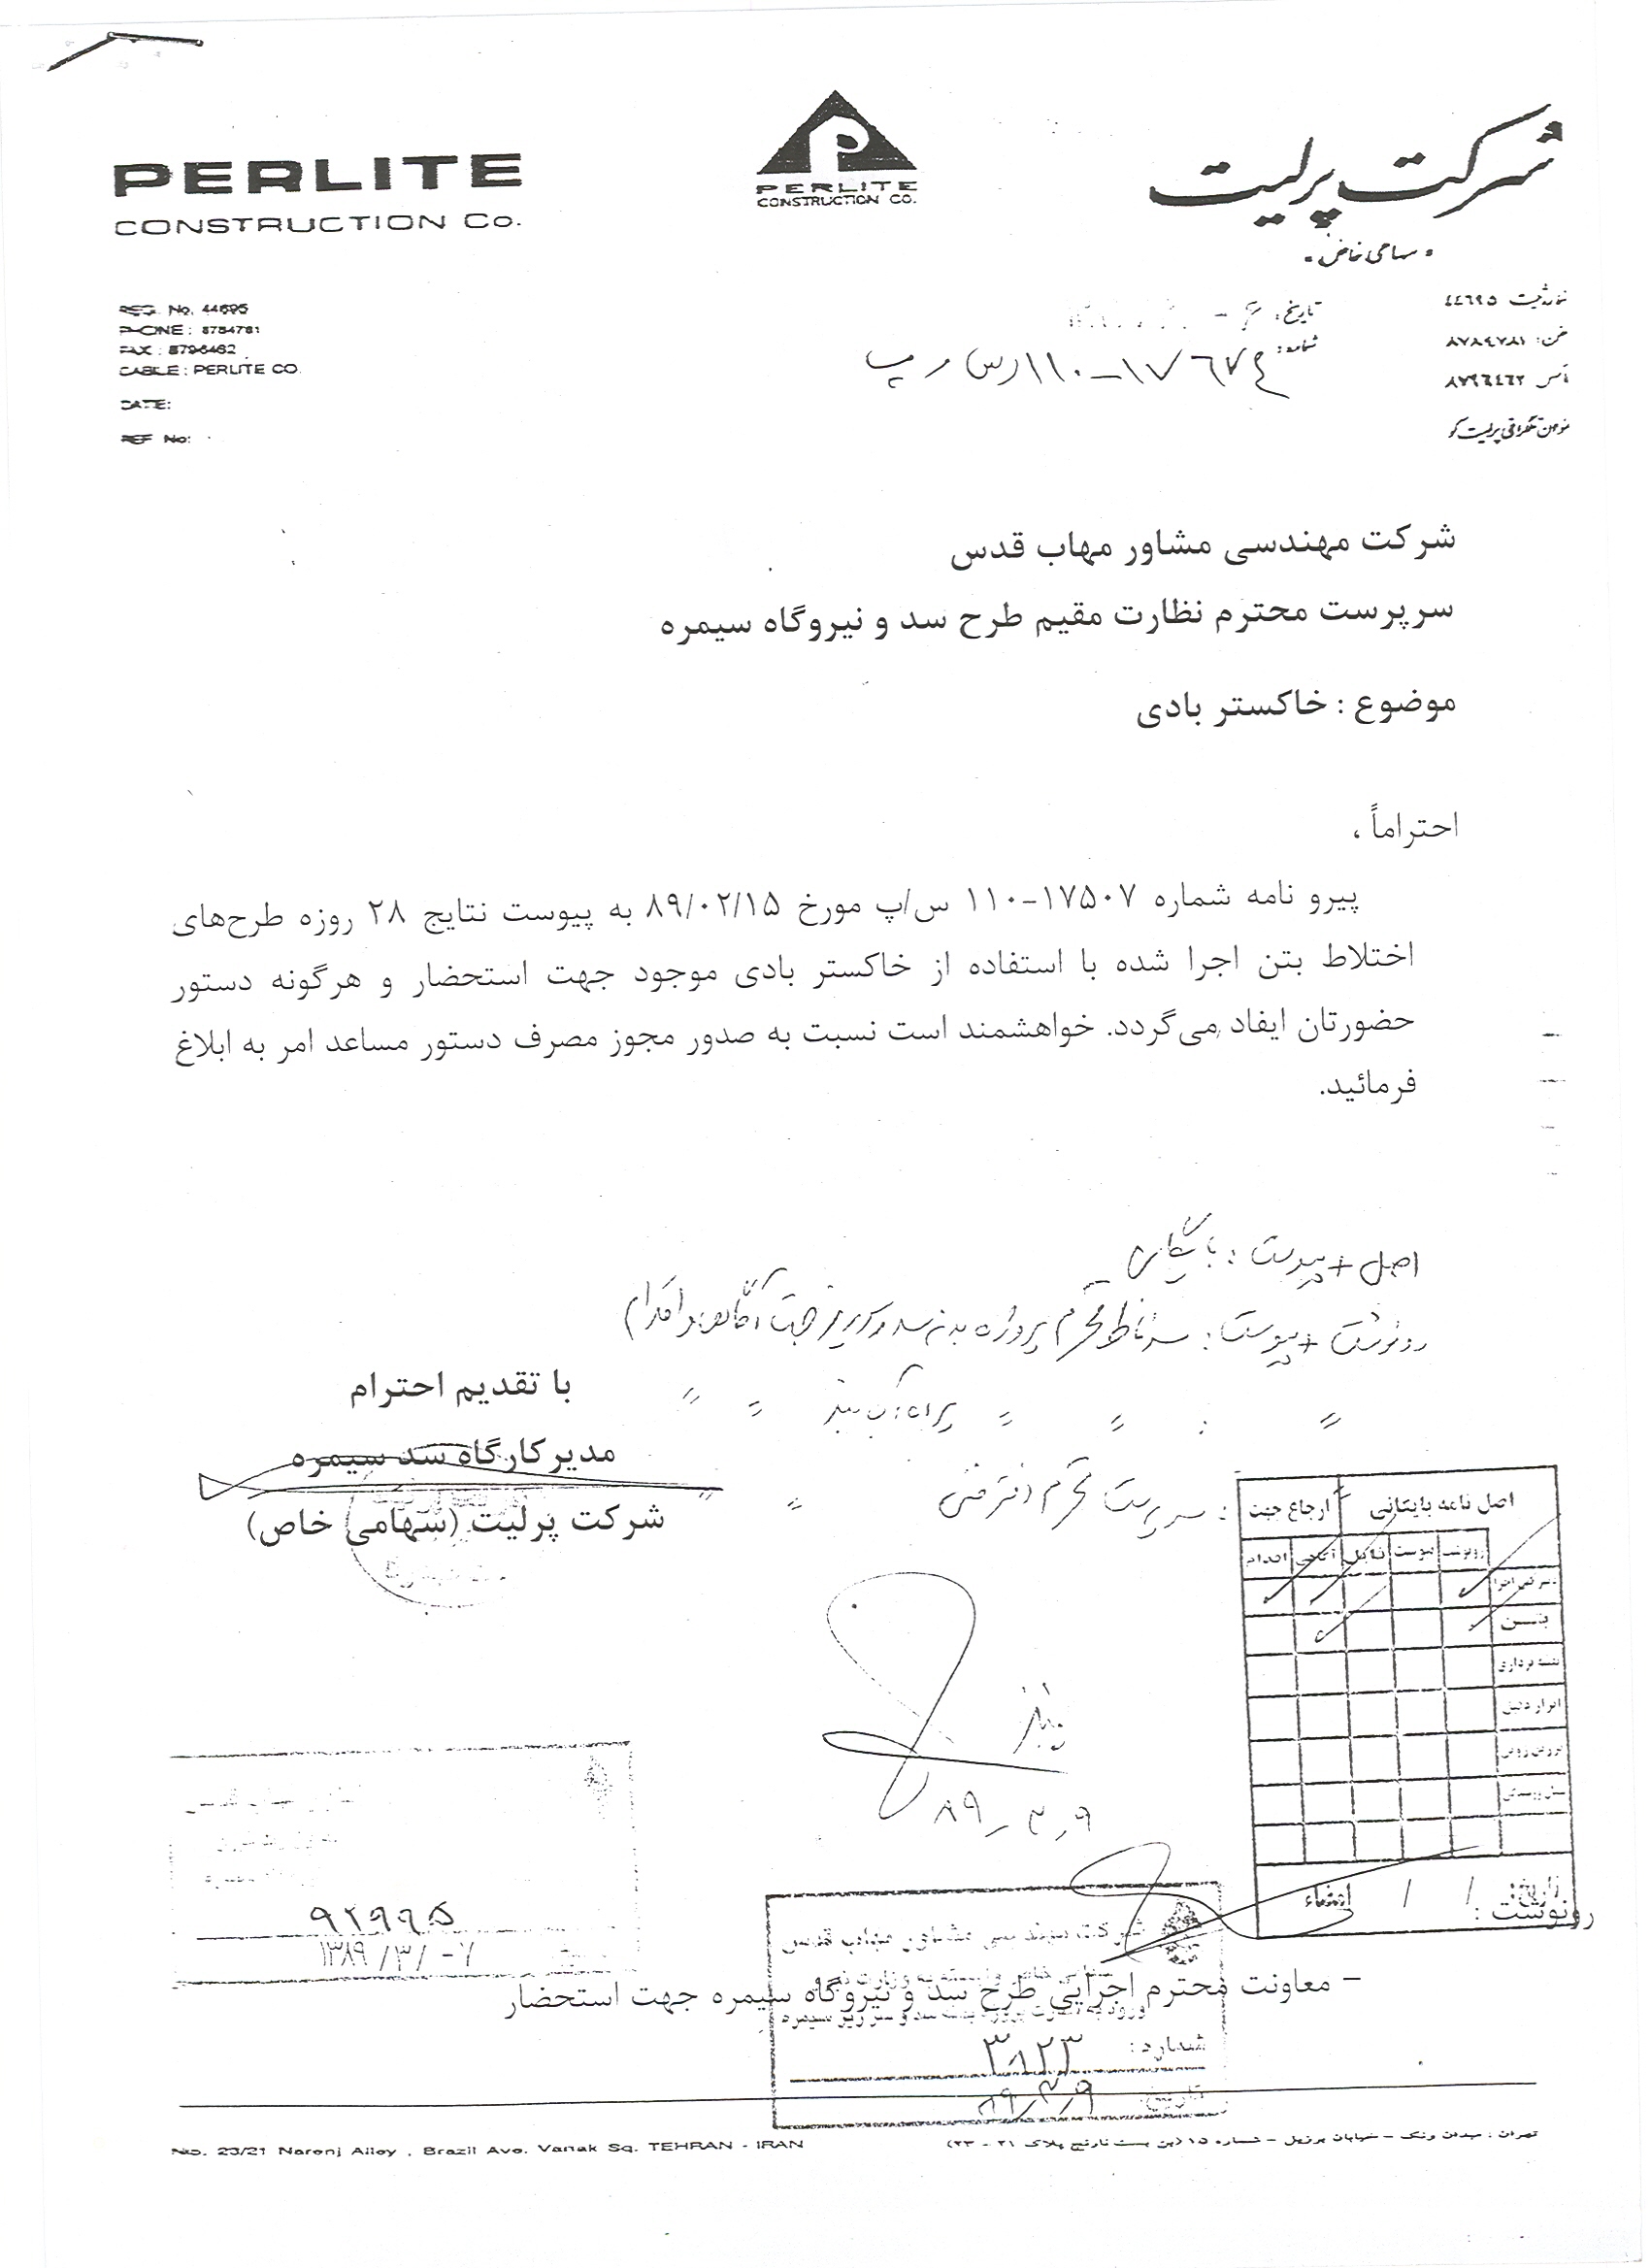 PERLITE
CONSTRUCTION Co.
PERLITE
CONSTRUCTION CO.
شرکت پرلیت
سهامی خاص
REG. No. 44695
PHONE : 8784781
FAX : 8796462
CABLE : PERLITE CO.
DATE:
REF No:
تاریخ:
شماره: ۱۷۶۷۴-۱۱۰/س/پ
شماره ثبت ٤٤٦٩٥
تلفن: ٨٧٨٤٧٨١
فاکس ٨٧٩٦٤٦٢
عنوان تلگرافی پرلیت کو
شرکت مهندسی مشاور مهاب قدس
سرپرست محترم نظارت مقیم طرح سد و نیروگاه سیمره
موضوع : خاکستر بادی
احتراماً ،
پیرو نامه شماره ۱۷۵۰۷-۱۱۰ س/پ مورخ ۸۹/۰۲/۱۵ به پیوست نتایج ۲۸ روزه طرح‌های
اختلاط بتن اجرا شده با استفاده از خاکستر بادی موجود جهت استحضار و هرگونه دستور
حضورتان ایفاد می‌گردد. خواهشمند است نسبت به صدور مجوز مصرف دستور مساعد امر به ابلاغ
فرمائید.
اصل + پیوست : بایگانی
رونوشت + پیوست : سرناظر محترم پروژه بدنه سد و سرریز جهت آگاهی و اقدام
" : " " " "
: سرپرست محترم دفتر فنی " "
با تقدیم احترام
مدیر کارگاه سد سیمره
شرکت پرلیت (سهامی خاص)
اصل نامه بایگانی ارجاع جهت
رونوشت پیوست فایل آگاهی اقدام
بتن
نقشه برداری
ابزار دقیق
تاریخ: / / امضاء
۸۹-۳-۹
۹۲۹۹۵
۱۳۸۹/۳/-۷
شرکت مهندسی مشاور مهاب قدس
شماره: ۳۸۲۳
تاریخ: ۸۹/۳/۹
رونوشت :
- معاونت محترم اجرایی طرح سد و نیروگاه سیمره جهت استحضار
No. 23/21 Narenj Alley , Brazil Ave. Vanak Sq. TEHRAN - IRAN
تهران : میدان ونک - خیابان برزیل - شماره ۱۵ (بن بست نارنج پلاک ۲۱ - ۲۳)